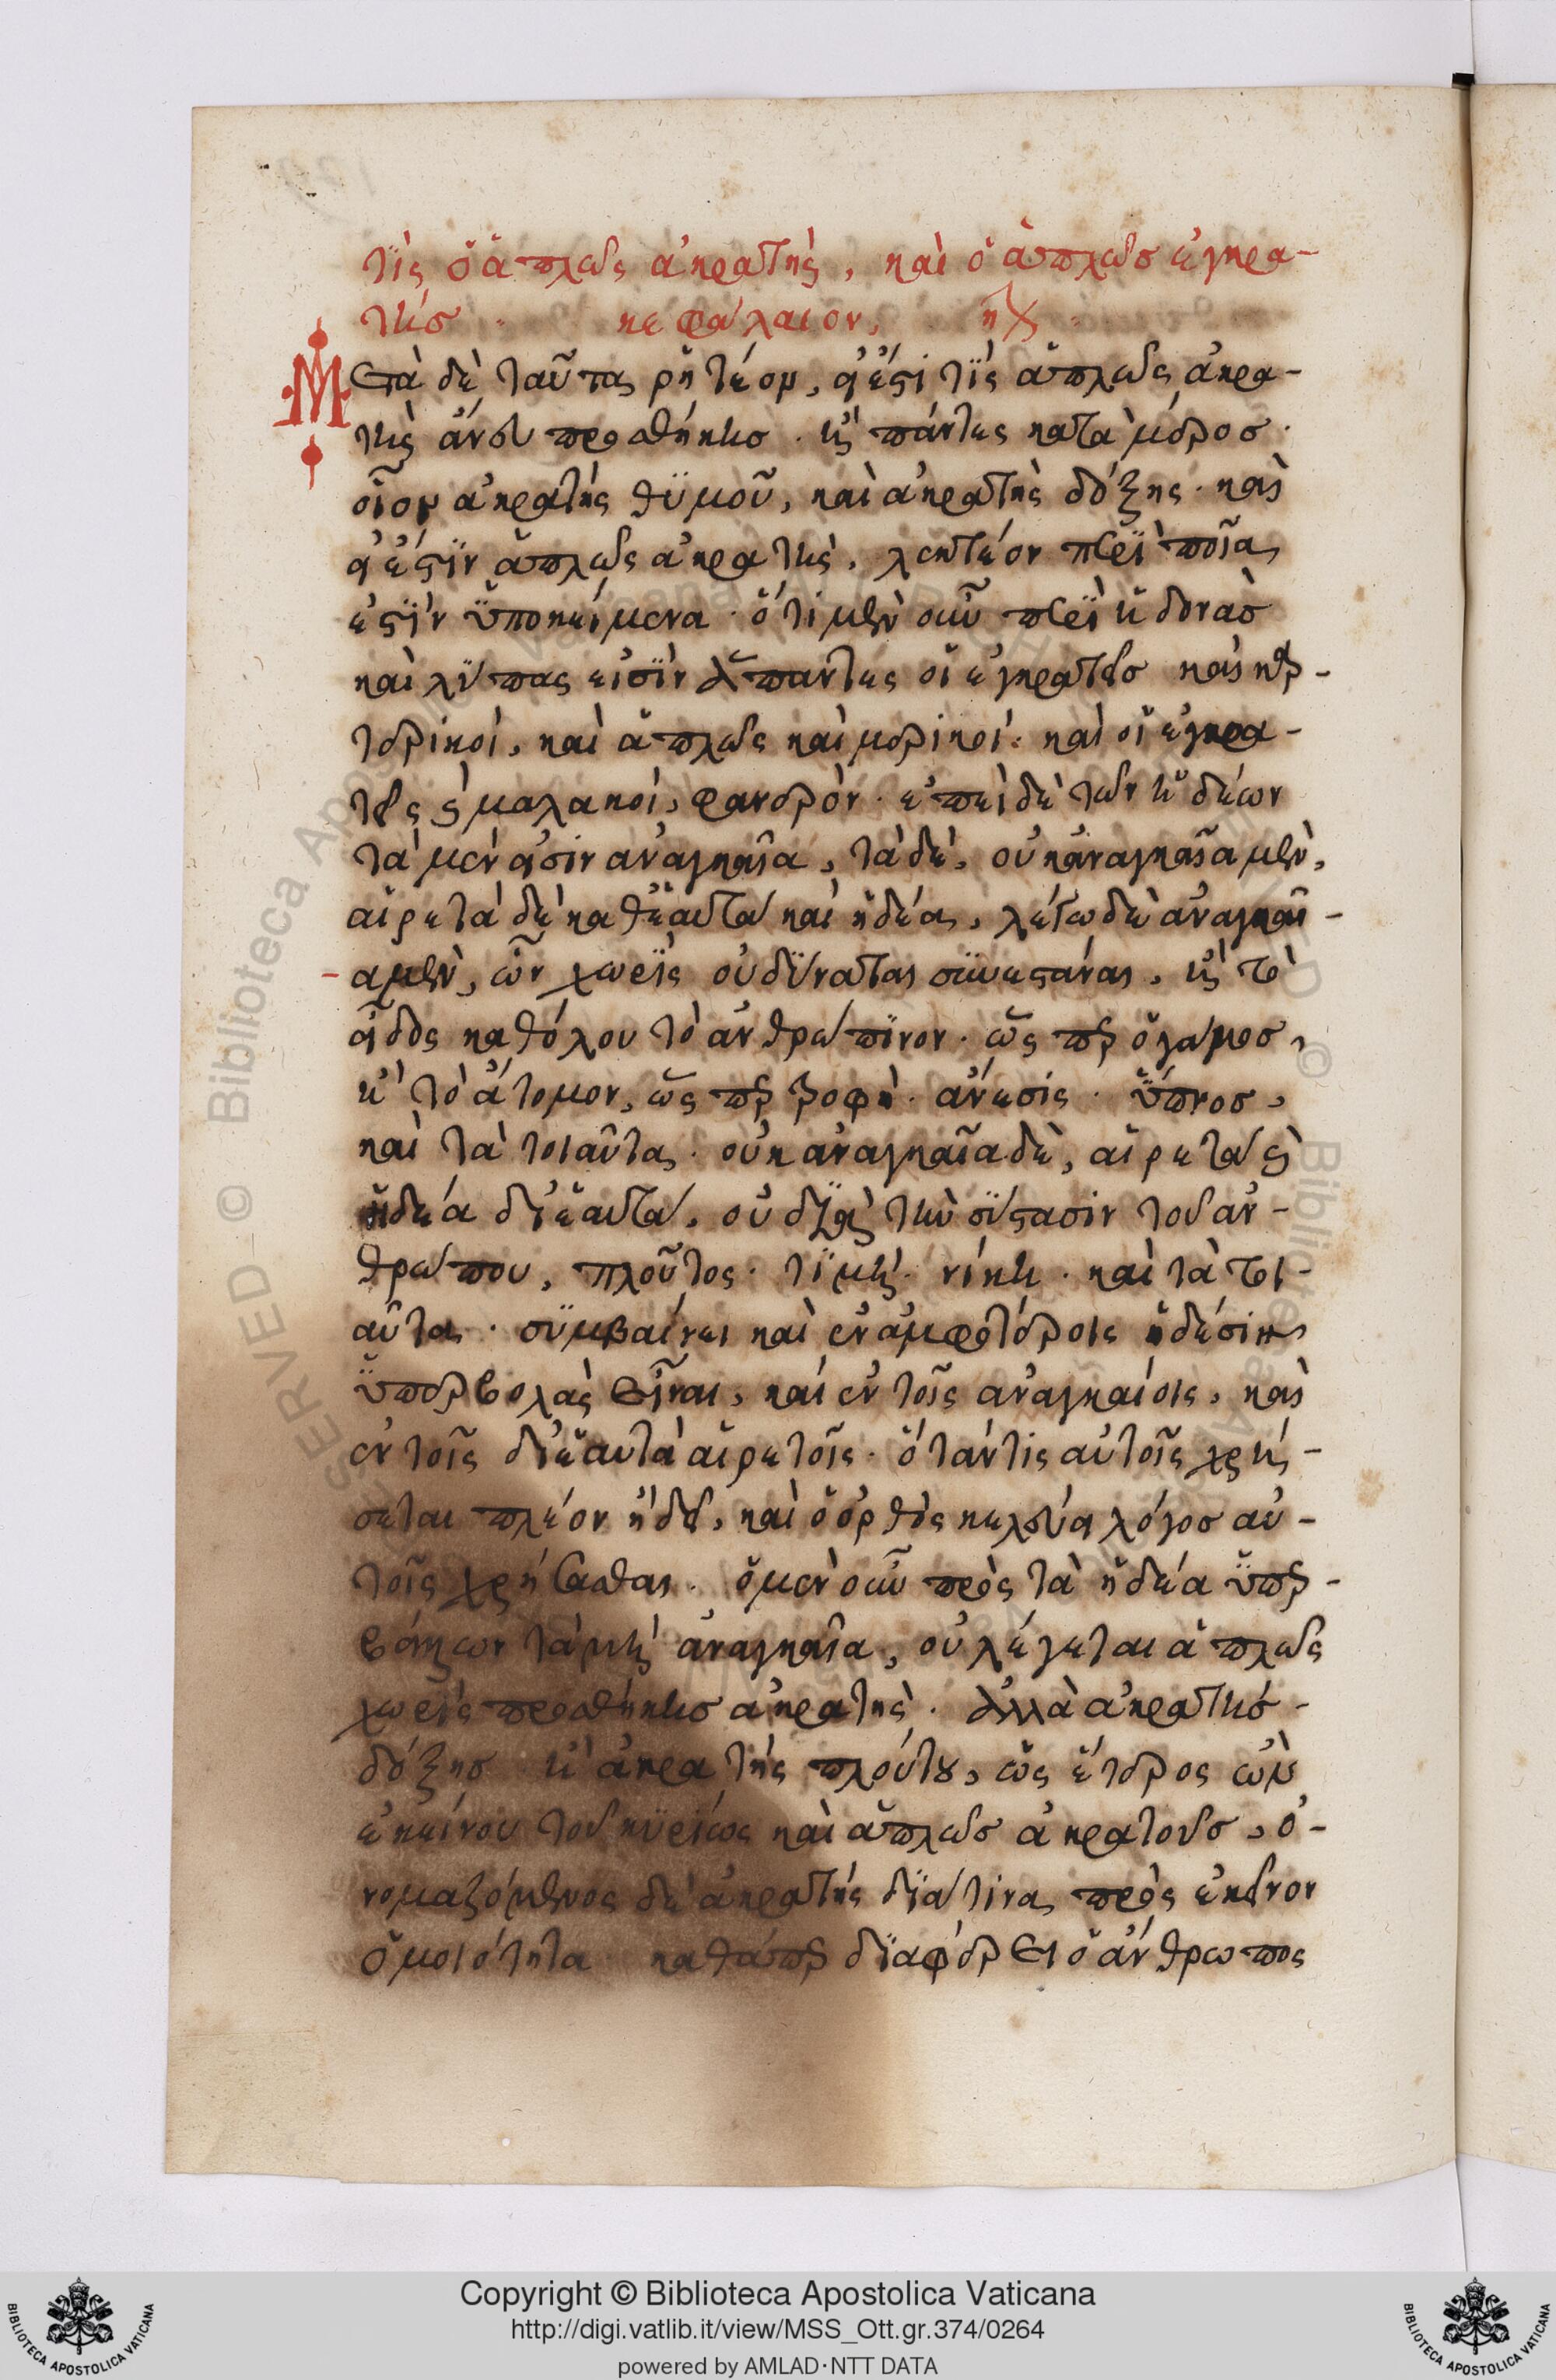 τίς ὁ ἁπλῶς ἀκρατὴς, καὶ ὁ ἁπλῶσ ἐγκρα-
τήσ · κεφάλαιον,
Μετὰ δὲ ταῦτα ῥητέον, εἰ ἔστι τὶς ἁπλῶς ἀκρα-
τὴς ἄνευ προσθήκησ · ἢ πάντες κατὰ μέροσ ·
οἷον ἀκρατὴς θϋμοῦ, καὶ ἀκρατὴς δόξης · καὶ
εἰ ἔστϊν ἁπλῶς ἀκρατὴς, λεκτέον περῒ ποῖα
ἐστῒν ὑποκείμενα · ὅτι μὲν οὖν περῒ ἡδονὰσ
καὶ λύπας εἰσῒν ἅπαντες οἱ ἐγκρατεῖσ καὶ καρ-
τερικοὶ, καὶ ἁπλῶς καὶ μερικοί · καὶ οἱ ἐγκρα-
τεῖς καὶ μαλακοὶ, φανερὸν · ἐπεὶ δὲ τῶν ἡδέων
τὰ μὲν εἰσιν ἀναγκαῖα, τὰ δὲ, οὐκ ἀναγκαῖα μὲν,
αἱρετὰ δὲ καθ' ἑαυτὰ καὶ ἡδέα, λέγω δὲ ἀναγκαῖ-
α μὲν, ὧν χωρῒς οὐ δΰναται συνεστάναι, ἢ τὸ
εἶδος καθόλου τὸ ἀνθρώπϊνον · ὥς περ ὁ γάμοσ,
ἢ τὸ ἄτομον, ὥς περ τροφὴ · ἄνεσις · ὕπνοσ,
καὶ τὰ τοιαῦτα · οὐκ ἀναγκαῖα δὲ, αἱρετὰ καὶ
ἡδέα δι' ἑαυτὰ, οὐ διὰ τὴν σΰστασιν τοῦ ἀν-
θρώπου, πλοῦτος · τϊμὴ · νίκη · καὶ τὰ τοι-
αῦτα · συμβαίνει καὶ ἐν ἀμφοτέροις ἡδέσιν
ὑπερβολὰς εἶναι, καὶ ἐν τοῖς ἀναγκαίοις, καὶ
ἐν τοῖς δι' ἑαυτὰ αἱρετοῖς · ὅταν τὶς αὐτοῖς χρή-
σεται πλέον ἤδει, καὶ ὁ ὀρθὸς κελεύει λόγοσ αὐ-
τοῖς χρῆσθαι · ὁ μὲν οὖν πρὸς τὰ ἡδέα ὑπερ-
βάλλων τὰ μὴ ἀναγκαῖα, οὐ λέγεται ἁπλῶς
χωρῒς προσθήκησ ἀκρατὴς · ἀλλὰ ἀκρατὴσ
δόξησ ἢ ἀκρατὴς πλούτου, ὡς ἕτερος ὢν
ἐκείνου τοῦ κυρίως καὶ ἁπλῶσ ἀκρατοῦσ, ὀ-
νομαζόμενος δὲ ἀκρατὴς δϊά τινα πρὸς ἐκεῖνον
ὁμοιότητα καθάπερ δϊαφέρει ὁ ἄνθρωπος
Copyright © Biblioteca Apostolica Vaticana
http://digi.vatlib.it/view/MSS_Ott.gr.374/0264
powered by AMLAD·NTT DATA